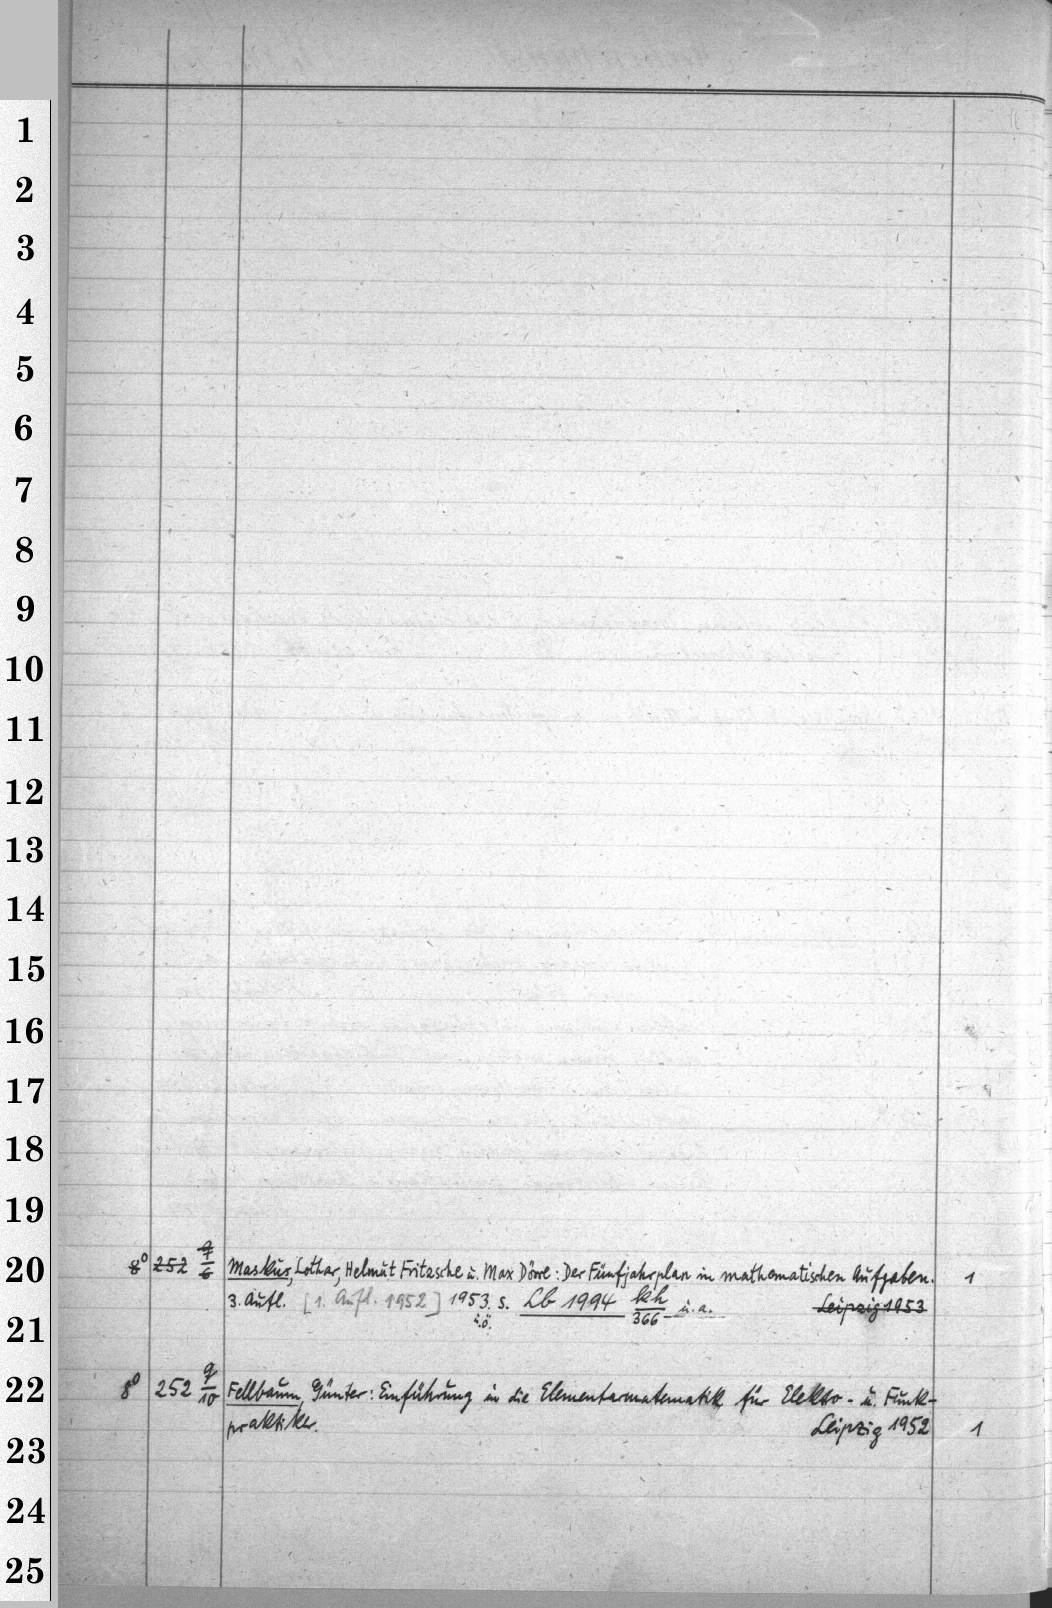 1
2
3
4
5
6
7
8
9
10
11
12
13
14
15
16
17
18
19
20 8° 252 q/6 Maskus, Lothar, Helmut Fritzsche u. Max Dörre: Der Fünfjahrplan in mathematischen Aufgaben. 1
3. Aufl. [1. Aufl. 1952] 1953 s. Lb 1994 kh/366 u.a. Leipzig 1953
21 u.ö.
22 8° 252 q/10 Fellbaum, Günter: Einführung in die Elementarmatematik für Elektro- u. Funk-
praktiker. Leipzig 1952 1
23
24
25